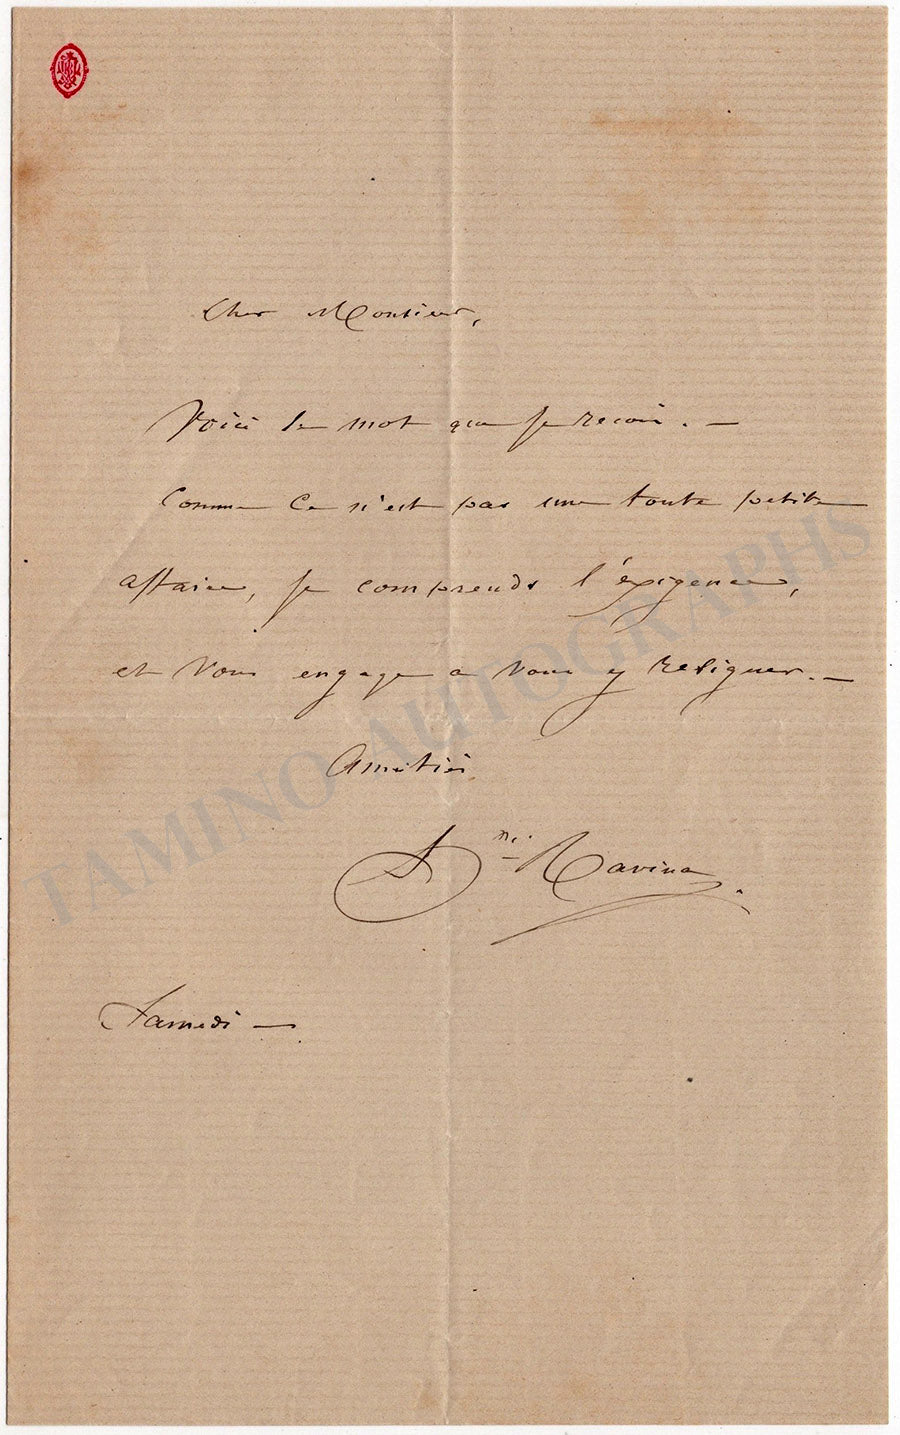 Cher Monsieur,
Voici le mot que je reçois. —
Comme ce n'est pas une toute petite
affaire, je comprends l'éxigence,
et vous engage a vous y resigner. —
Amitiés
Ravina
Samedi —
TAMINO AUTOGRAPHS